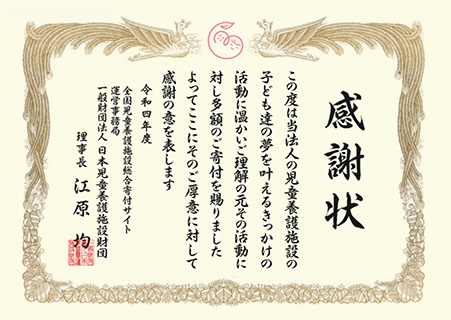 感謝状
この度は当法人の児童養護施設の
子ども達の夢を叶えるきっかけの
活動に温かいご理解の元その活動に
対し多額のご寄付を賜りました
よってここにそのご厚意に対して
感謝の意を表します
令和四年度
全国児童養護施設総合寄付サイト
運営事務局
一般財団法人 日本児童養護施設財団
理事長 江原 均